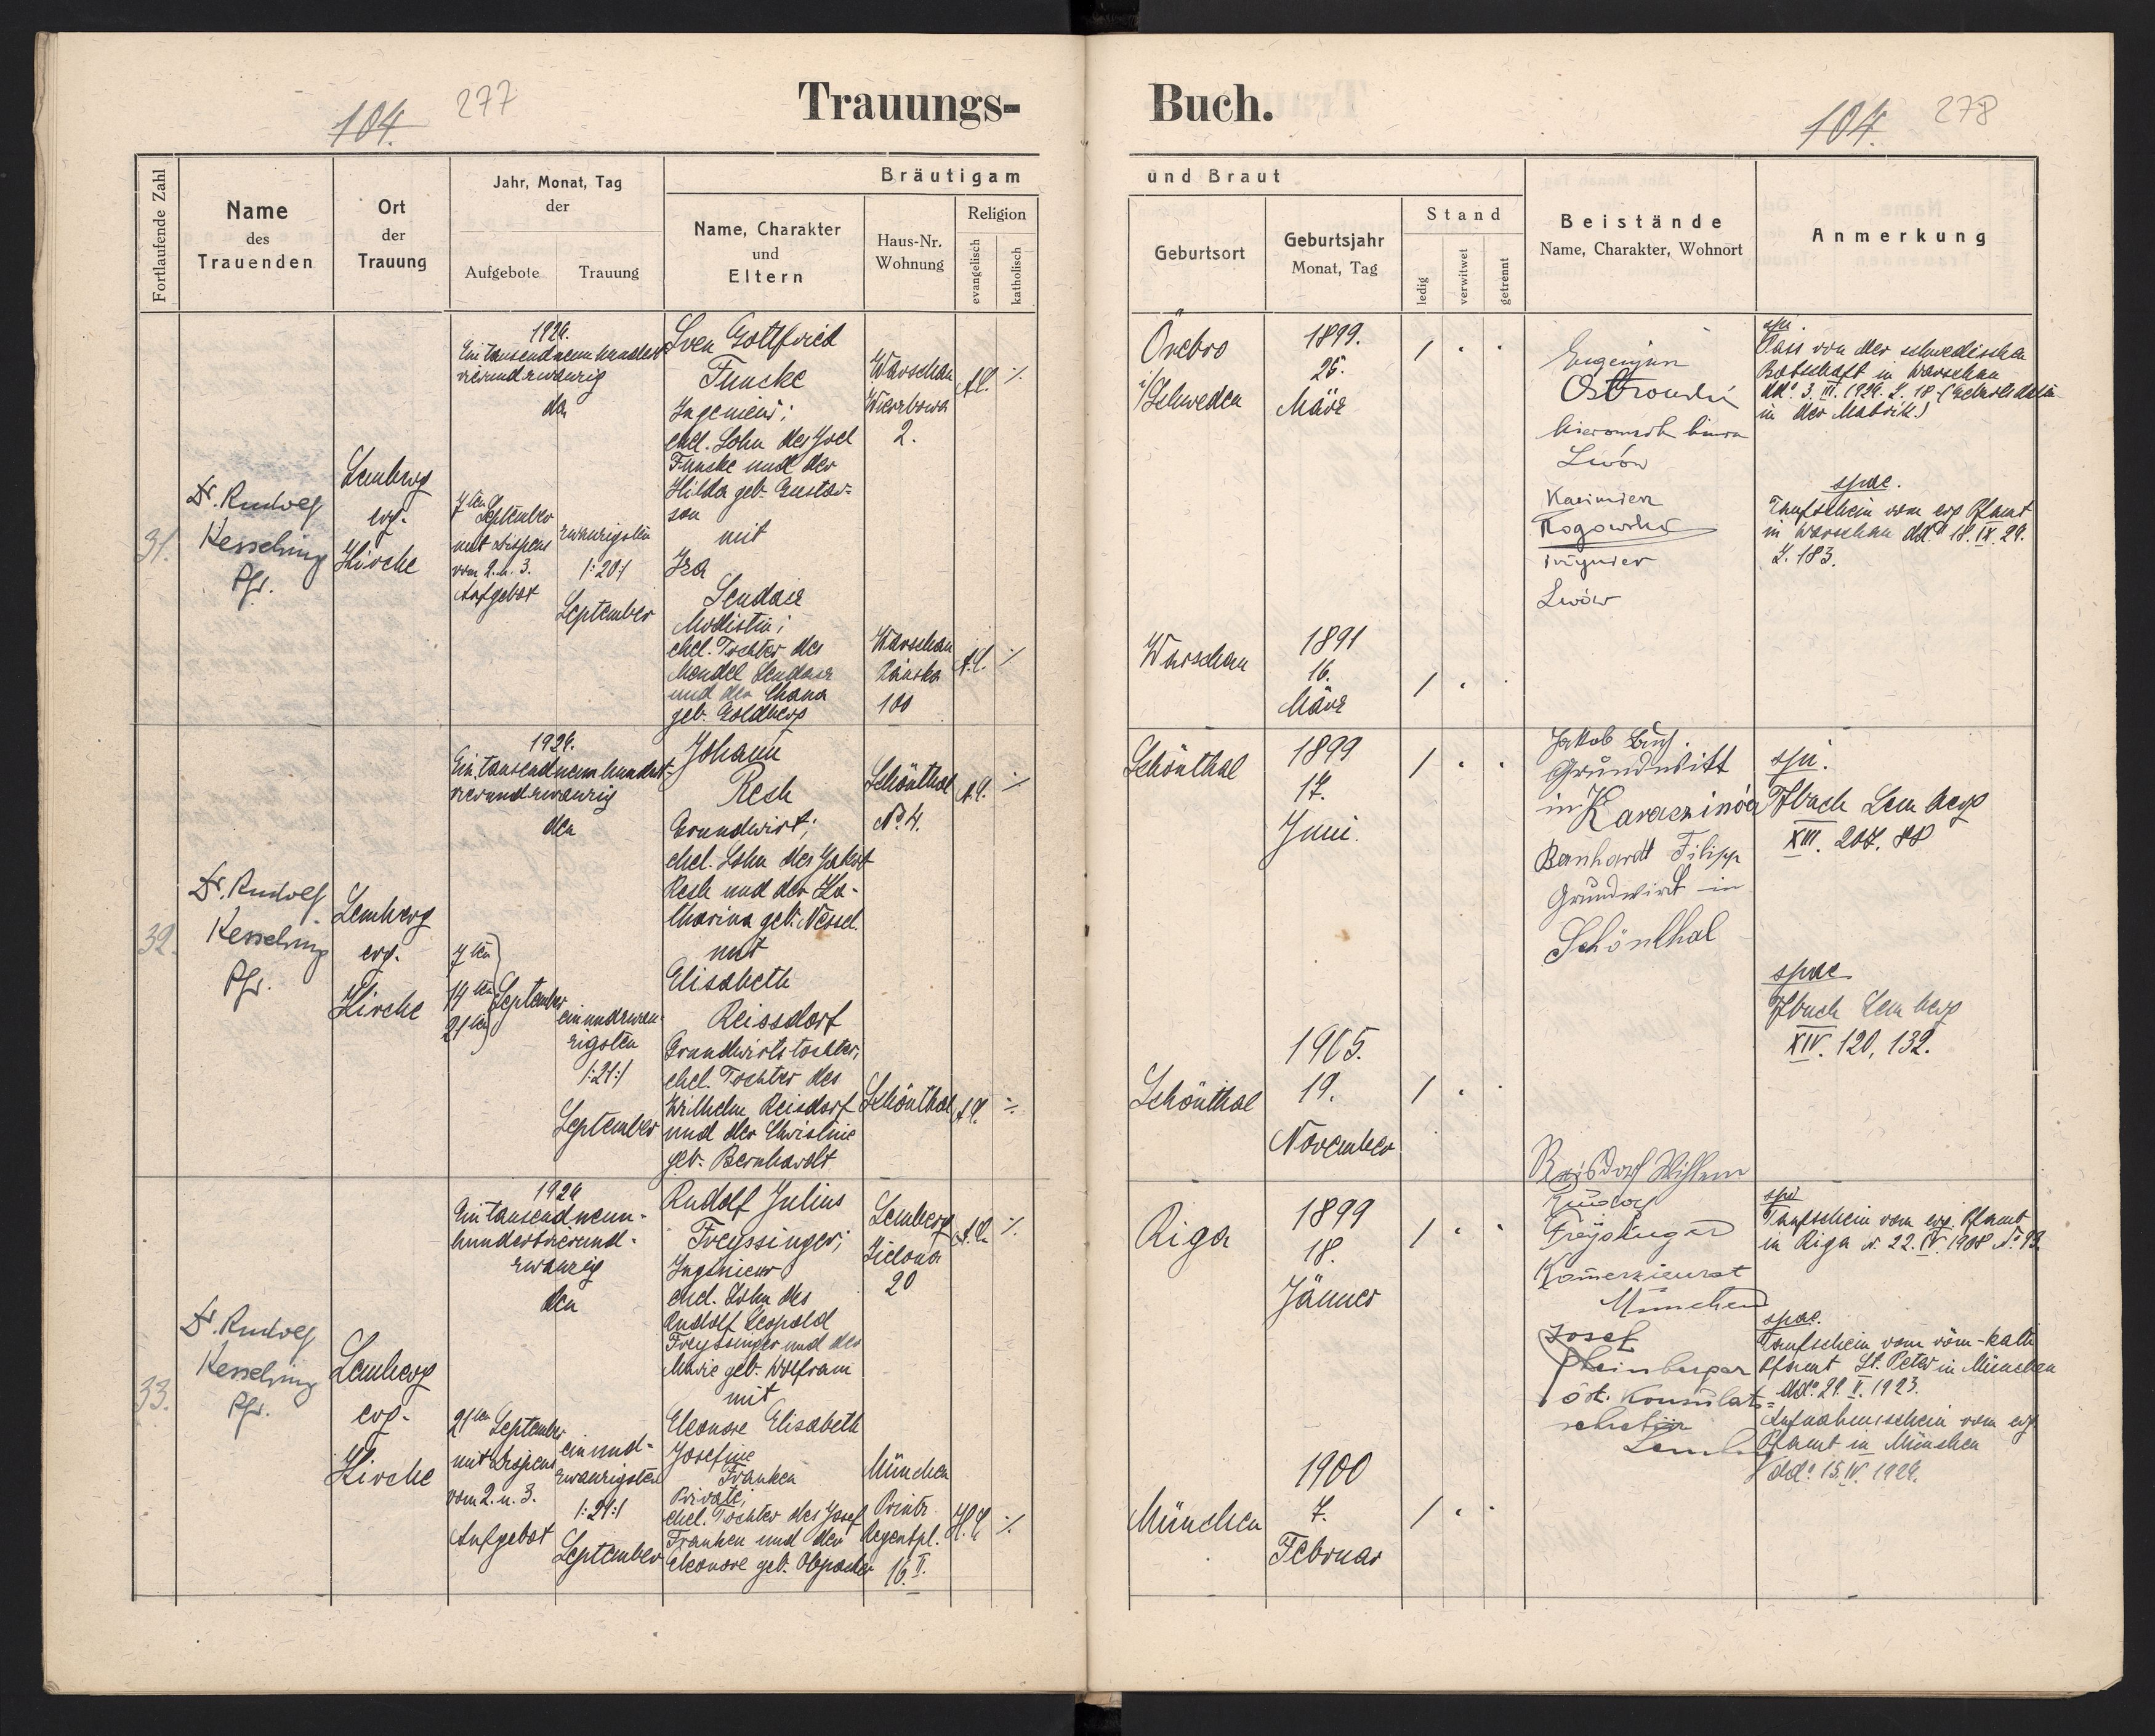 104.
277
Trauungs-
Fortlaufende Zahl
Name
des
Trauenden
Ort
der
Trauung
Jahr, Monat, Tag
der
Aufgebote
Trauung
Bräutigam
Name, Charakter
und
Eltern
Haus-Nr.
Wohnung
Religion
evangelisch
katholisch
31.
Dr. Rudolf
Kesselring
Pfr.
Lemberg
evg.
Kirche
1924.
Ein tausendneunhundert
vierundzwanzig
den
7ten September
mit Dispens
vom 2. u. 3.
Aufgebot
zwanzigsten
/:20:/
September
Sven Gottfried
Funcke
Ingenieur;
ehel. Sohn des Joel
Funcke und der
Hilda geb. Gustav-
son
mit
Iza
Sendacz
Modistin;
ehel. Tochter des
Mendel Sendacz
und der Chana
geb. Goldberg
Warschau
Wierzbowa
2.
A.C.
·/.
Warschau
100
A.C.
·/.
32.
Dr. Rudolf
Kesselring
Pfr.
Lemberg
evg.
Kirche
1924.
Ein tausendneunhundert-
vierundzwanzig
den
7ten
14ten September
21ten
einundzwan-
zigsten
/:21:/
September
Johann
Resh
Grundwirt;
ehel. Sohn des Jakob
Resh und der Ka-
tharina geb. Nessel.
mit
Elisabeth
Reissdorf
Grundwirtstochter;
ehel. Tochter des
Wilhelm Reisdorf
und der Christine
geb. Bernhardt
Schönthal
No. 4.
A.C.
·/.
Schönthal
A.C.
·/.
33.
Dr. Rudolf
Kesselring
Pfr.
Lemberg
evg.
Kirche
1924
Ein tausendneun-
hundertvierund-
zwanzig
den
21ten September
mit Dispens
vom 2. u. 3.
Aufgebot
einund-
zwanzigsten
/:21:/
September
Rudolf Julius
Freyssinger;
Ingenieur
ehel. Sohn des
Rudolf Leopold
Freyssinger und der
Marie geb. Wolfram
mit
Eleonore Elisabeth
Josefine
Franken
Private;
ehel. Tochter des Josef
Franken und der
Eleonore geb. Obpacher
Lemberg
Zielona
20
A.C.
·/.
München
Prinz
Regentpl.
16. II.
H.C.
·/.
Buch.
104.
278
und Braut
Geburtsort
Geburtsjahr
Monat, Tag
Stand
ledig
verwitwet
getrennt
Beistände
Name, Charakter, Wohnort
Anmerkung
Örebro
i/Schweden
1899.
25.
März
/
Eugenjusz
Ostrowski
kierownik biura
Lwów
Kazimierz
Rogowski
inżynier
Lwów
spi.
Pass von der schwedischen
Botschaft in Warschau
ddo. 3. III. 1924. Z. 18
in der Matrik)
spae.
Taufschein vom evg Pfamt
in Warschau ddo 18. IX. 24.
Z. 183.
Warschau
1891
16.
März
/
Schönthal
1899
17.
Juni.
/
Jakob
Grundwitt
in Karaczinóa
Bernhardt Filipp
Grundwirt in
Schönthal
spi.
Tfbuch Lemberg
XIII. 207. 88
spae
Tfbuch Lemberg
XIV. 120, 132.
Schönthal
1905.
19.
November
/
Reisdorf Wilhelm
Riga
1899
18.
Jänner
/
Rudolf
Freysinger
Komerzienrat
München
Josef
Steinberger
öst. Konsulats-
Lemberg
spi
Taufschein vom evg. Pfamt
in Riga v. 22. IV. 1908 No. 93.
spae.
Taufschein vom röm-kath
Pfamt St. Peter in München
ddo. 29. V. 1923.
Aufnahmsschein vom evg
Pfamt in München
ddo. 15. IV. 1924.
München
1900
7.
Februar
/